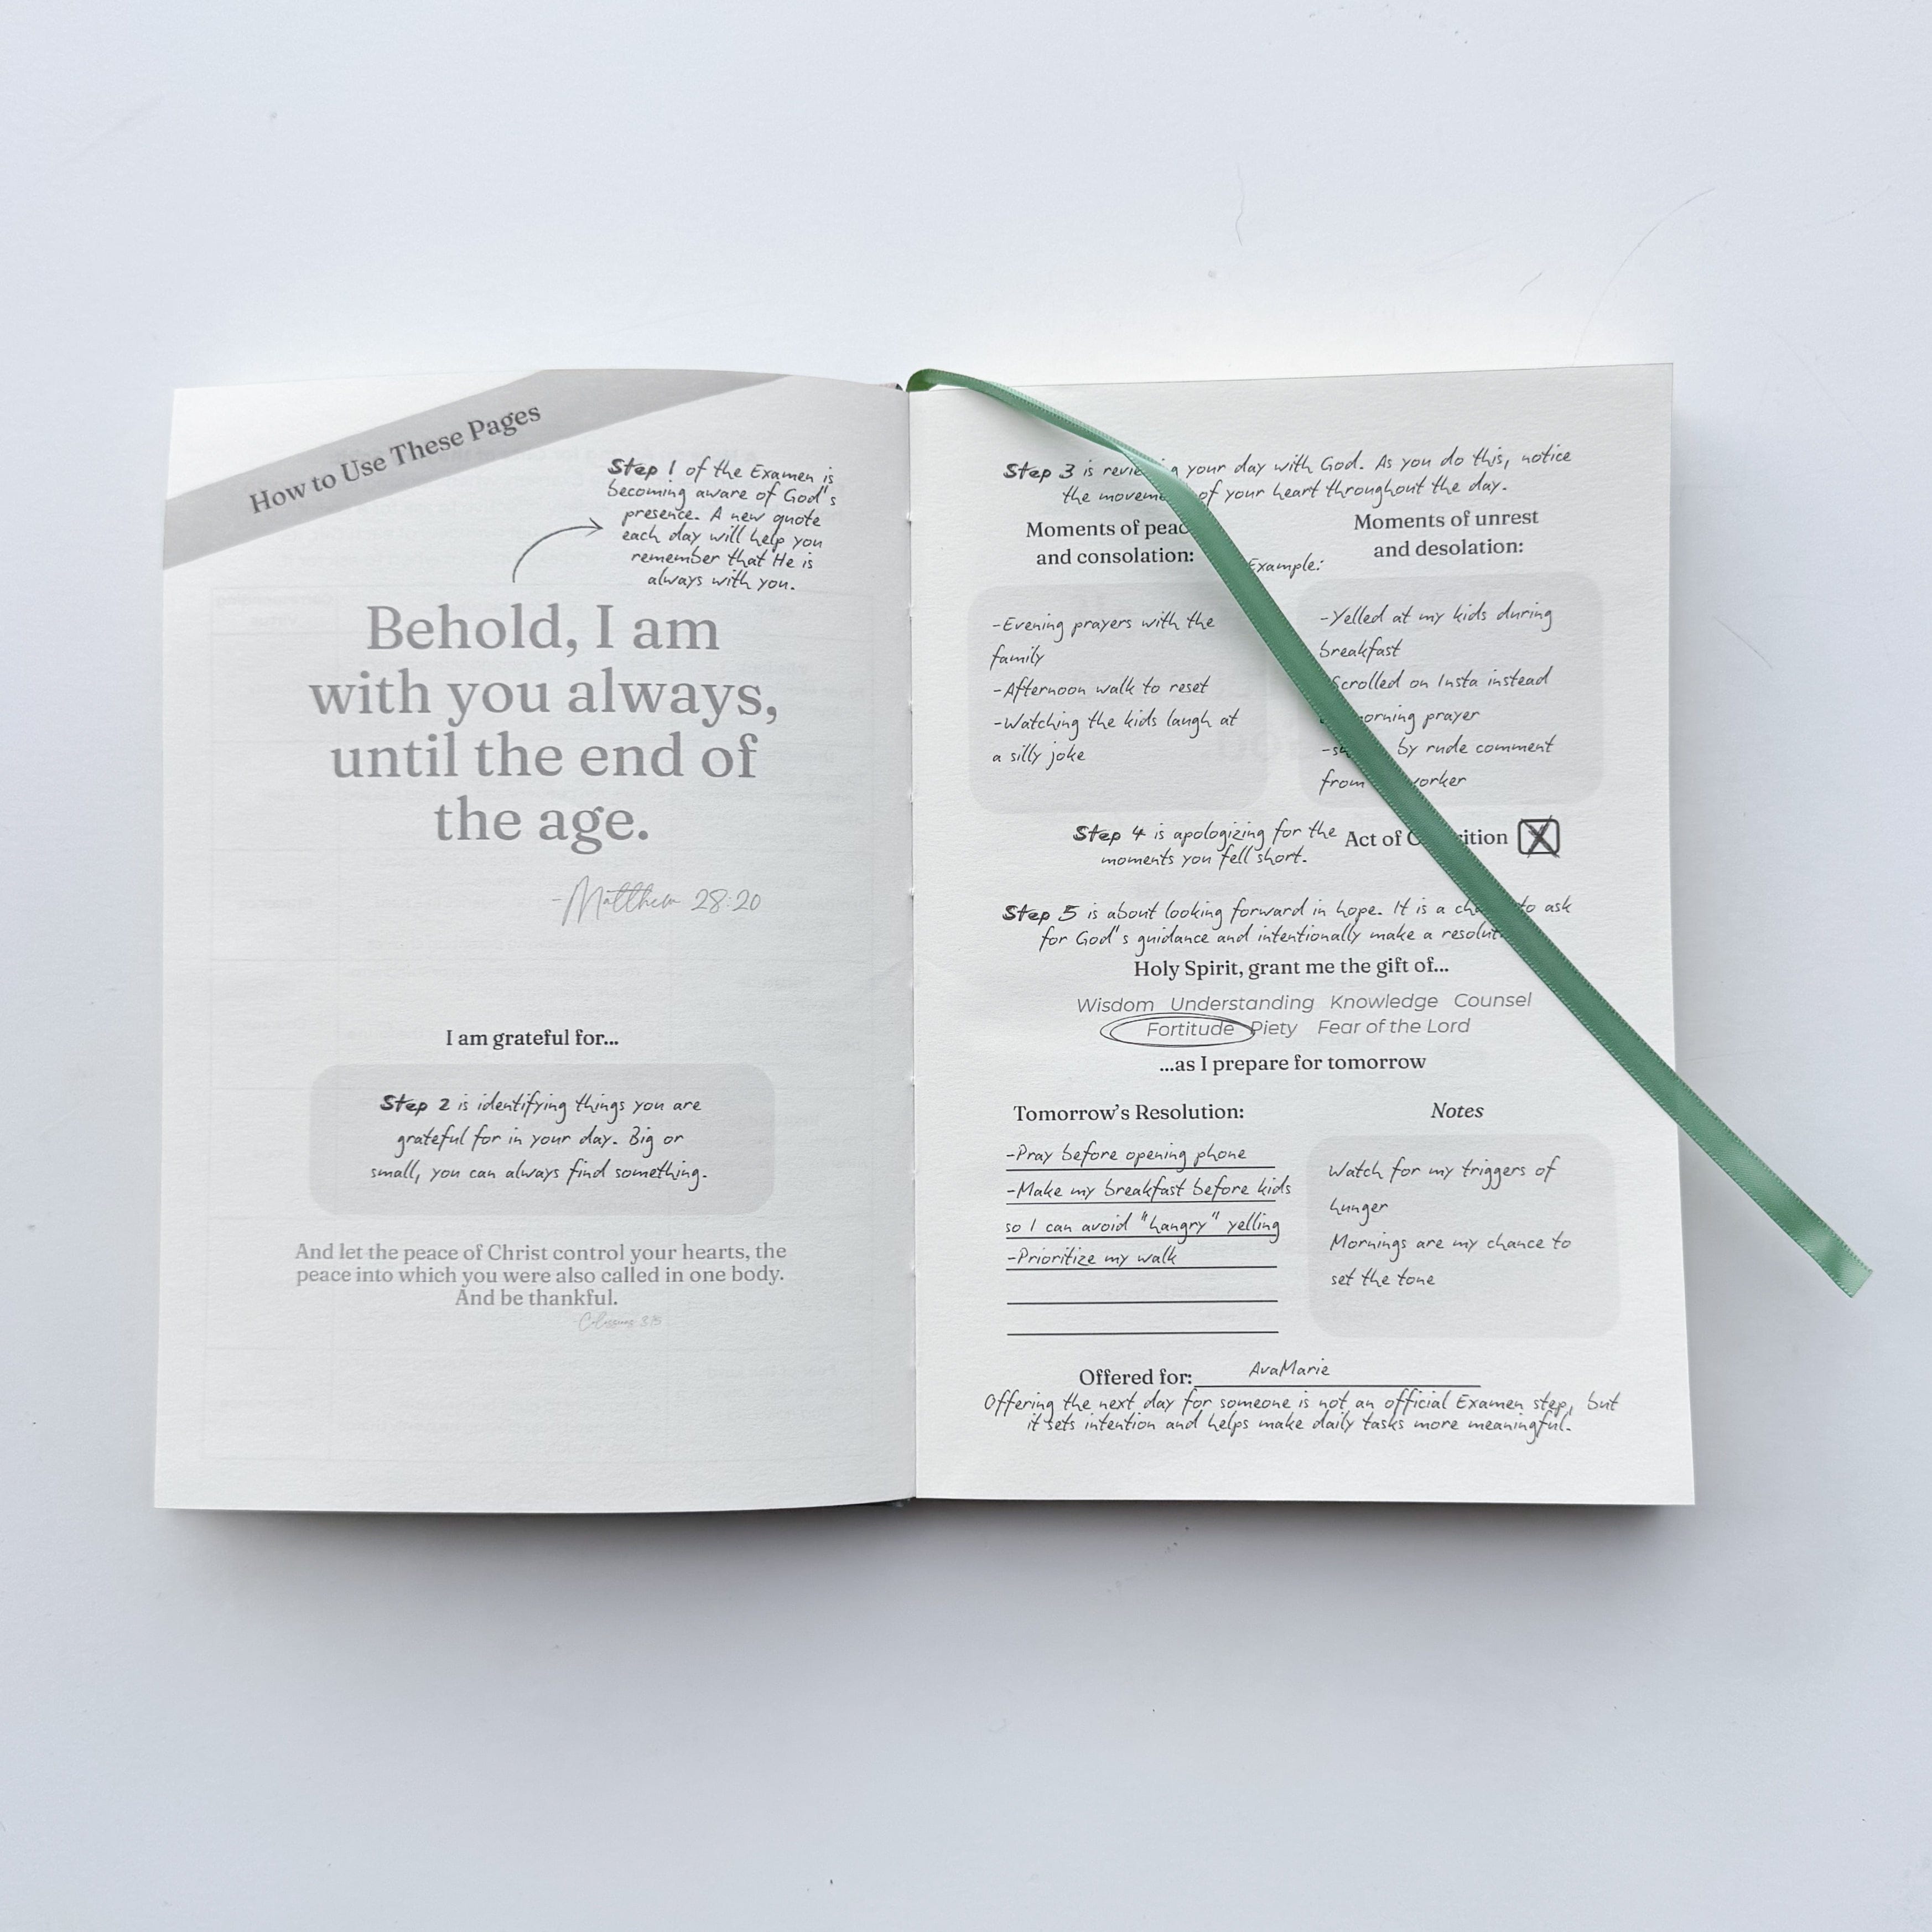 How to Use These Pages
Step 1 of the Examen is
becoming aware of God's
presence. A new quote
each day will help you
remember that He is
always with you.
Behold, I am
with you always,
until the end of
the age.
-Matthew 28:20
I am grateful for...
Step 2 is identifying things you are
grateful for in your day. Big or
small, you can always find something.
And let the peace of Christ control your hearts, the
peace into which you were also called in one body.
And be thankful.
Colossians 3:15
Step 3 is your day with God. As you do this, notice
the of your heart throughout the day.
Moments of
and consolation:
Example:
Moments of unrest
and desolation:
-Evening prayers with the
family
-Afternoon walk to reset
-Watching the kids laugh at
a silly joke
-Yelled at my kids during
breakfast
Scrolled on Insta instead
prayer
by rude comment
from
Step 4 is apologizing for the
moments you fell short.
Act of
Step 5 is about looking forward in hope. It is a to ask
for God's guidance and intentionally make a
Holy Spirit, grant me the gift of...
Wisdom Understanding Knowledge Counsel
Fortitude Piety Fear of the Lord
...as I prepare for tomorrow
Tomorrow's Resolution:
-Pray before opening phone
-Make my breakfast before kids
so I can avoid "hangry" yelling
-Prioritize my walk
Notes
Watch for my triggers of
hunger
Mornings are my chance to
set the tone
Offered for: AvaMarie
Offering the next day for someone is not an official Examen step, but
it sets intention and helps make daily tasks more meaningful.